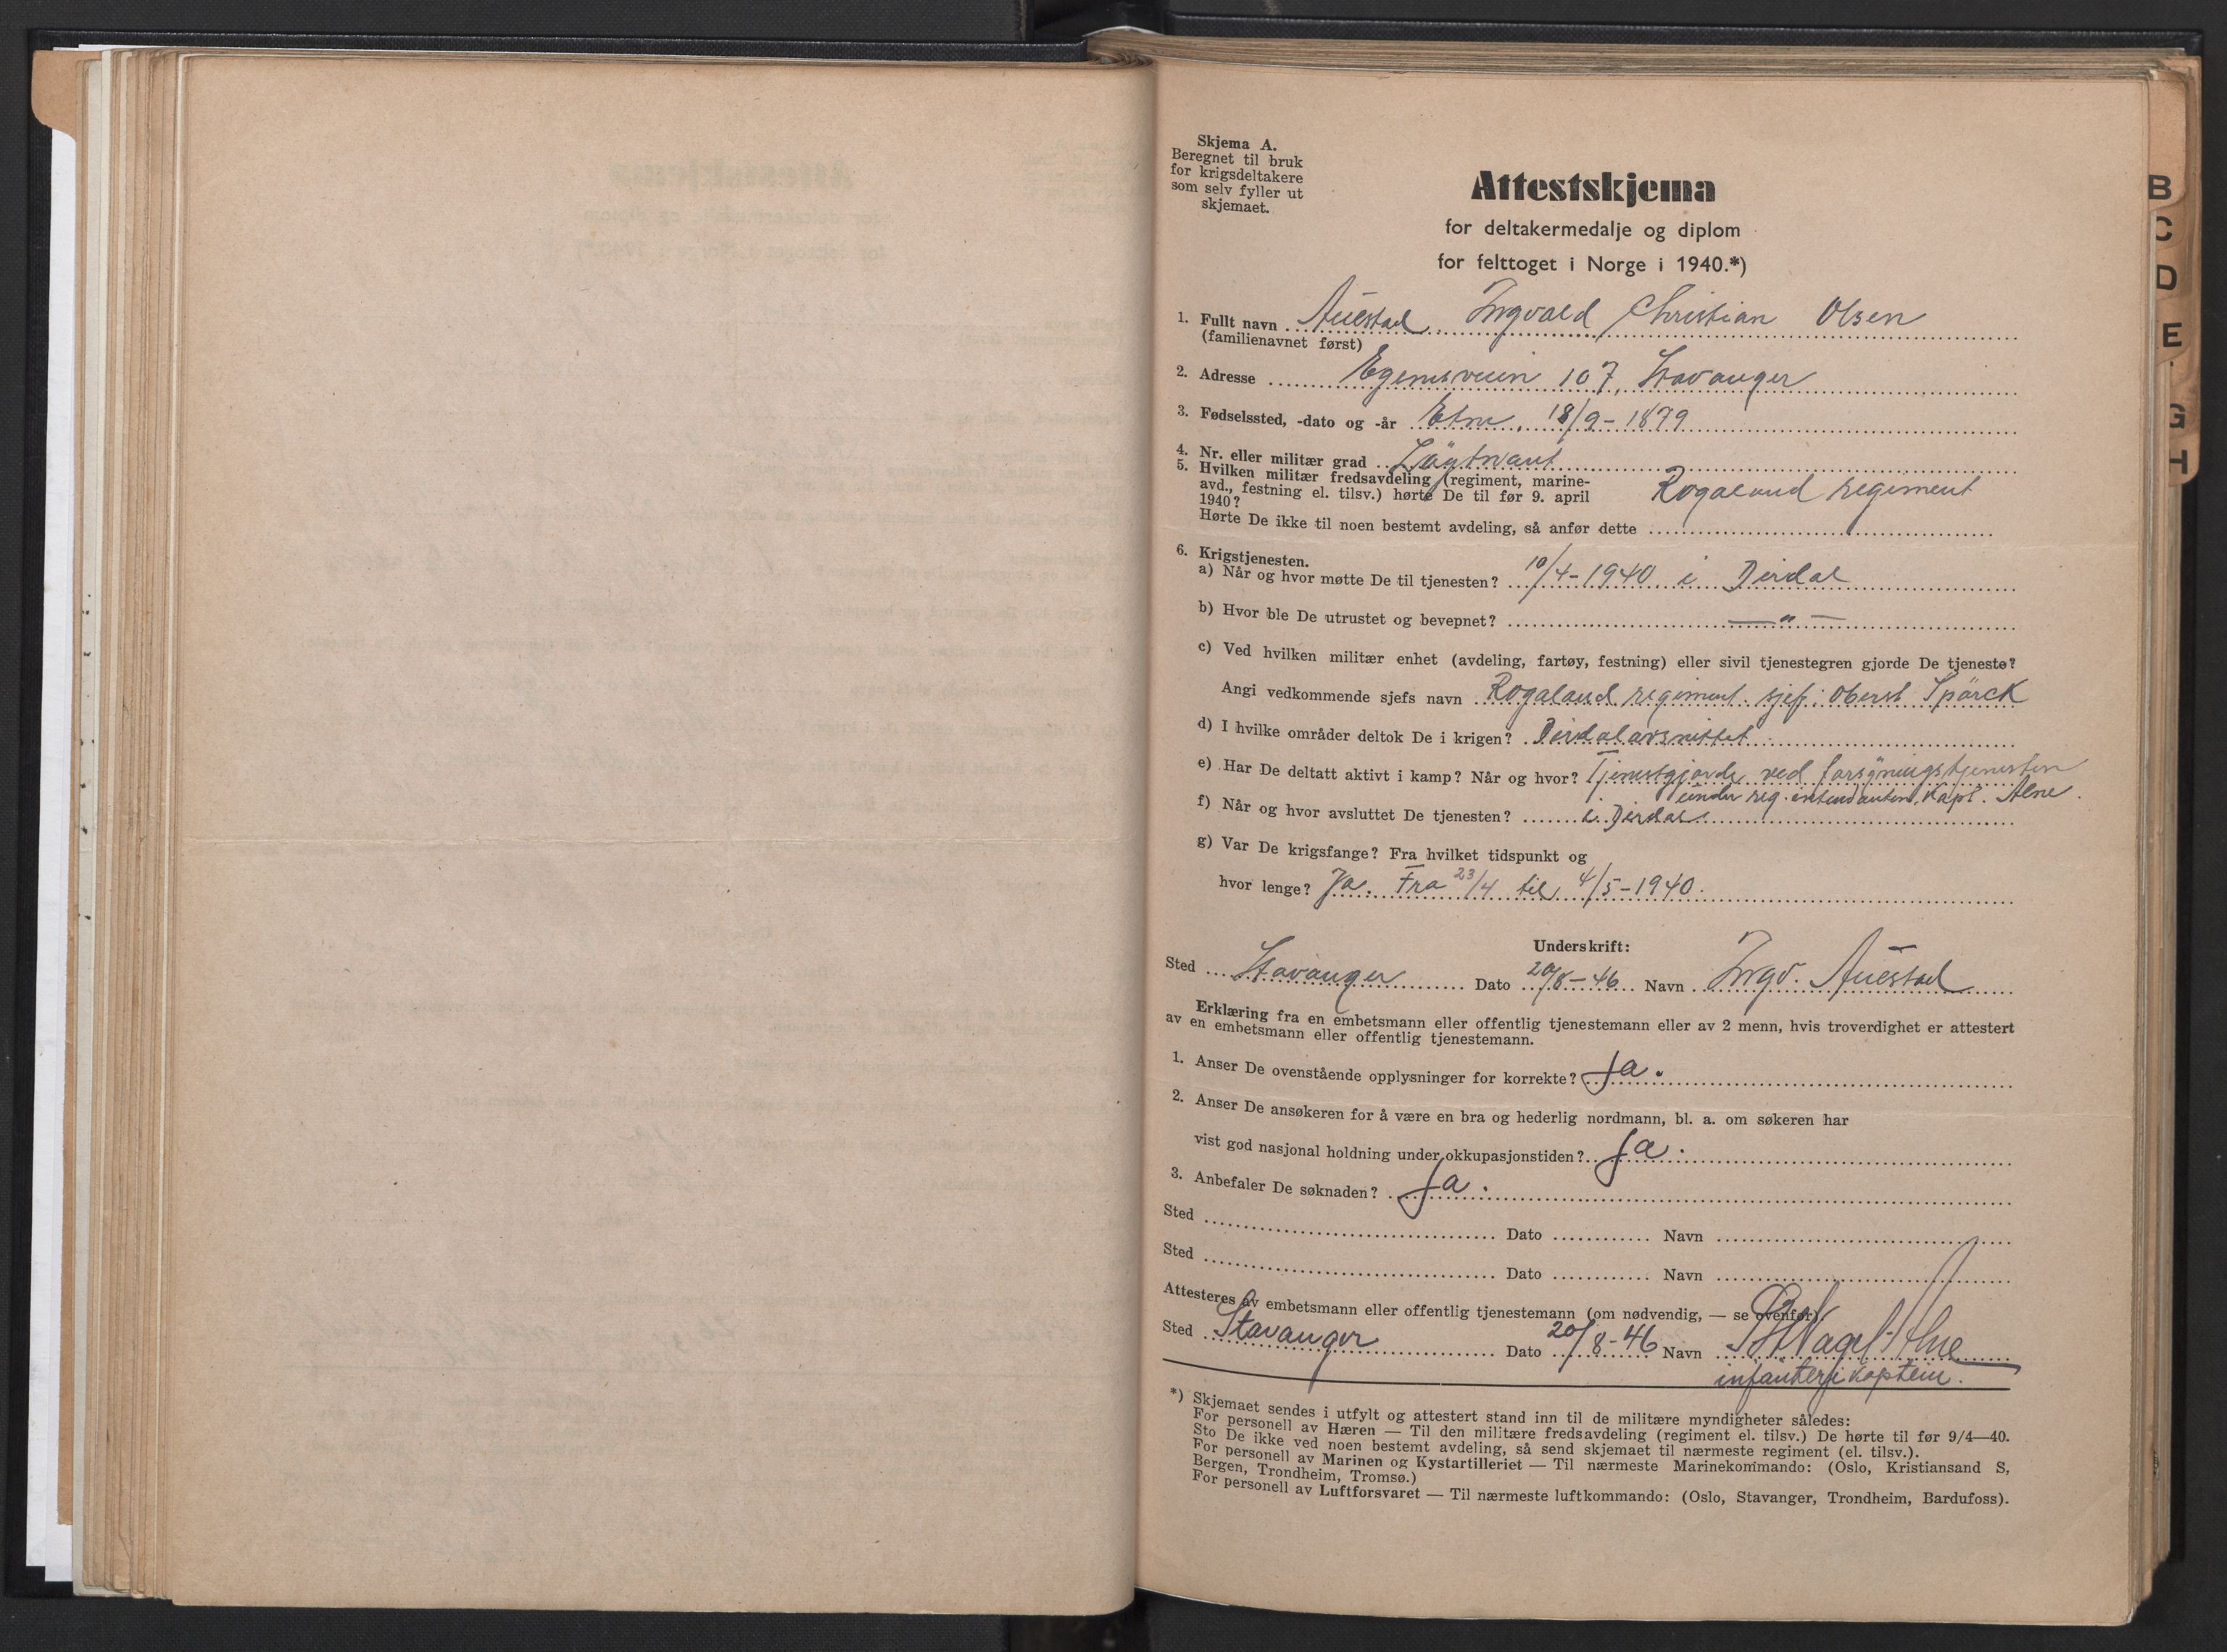 Skjema A.
Beregnet til bruk
for krigsdeltakere
som selv fyller ut
skjemaet.
Attestskjema
for deltakermedalje og diplom
for felttoget i Norge i 1940.*)
1. Fullt navn Auestad Ingvald Christian Olsen
(familienavnet først)
2. Adresse 107, Stavanger
3. Fødselssted, -dato og -år Etne, 18/9-1879
4. Nr. eller militær grad Löytnant
5. Hvilken militær fredsavdeling (regiment, marine-
avd., festning el. tilsv.) hørte De til før 9. april Rogaland regiment
1940?
Hørte De ikke til noen bestemt avdeling, så anfør dette
6. Krigstjenesten.
a) Når og hvor møtte De til tjenesten? 10/4-1940 i Dirdal
b) Hvor ble De utrustet og bevepnet? — " —
c) Ved hvilken militær enhet (avdeling, fartøy, festning) eller sivil tjenestegren gjorde De tjeneste?
Angi vedkommende sjefs navn Rogaland regiment. sjef: Oberst Spörck
d) I hvilke områder deltok De i krigen? Dirdalavsnittet
e) Har De deltatt aktivt i kamp? Når og hvor? Tjenestgjorde ved forsyningstjenesten
under reg. intendanten, Kapt. Alne.
f) Når og hvor avsluttet De tjenesten? i Dirdal
g) Var De krigsfange? Fra hvilket tidspunkt og
hvor lenge? Ja. Fra 23/4 til 4/5-1940.
Underskrift:
Sted Stavanger Dato 20/8-46 Navn Ingv. Auestad
Erklæring fra en embetsmann eller offentlig tjenestemann eller av 2 menn, hvis troverdighet er attestert
av en embetsmann eller offentlig tjenestemann.
1. Anser De ovenstående opplysninger for korrekte? Ja.
2. Anser De ansøkeren for å være en bra og hederlig nordmann, bl. a. om søkeren har
vist god nasjonal holdning under okkupasjonstiden? Ja.
3. Anbefaler De søknaden? Ja.
Sted Dato Navn
Sted Dato Navn
Attesteres av embetsmann eller offentlig tjenestemann (om nødvendig, — se ovenfor)
Sted Stavanger Dato 20/8-46 Navn Alne
infanterikaptein.
*) Skjemaet sendes i utfylt og attestert stand inn til de militære myndigheter således:
For personell av Hæren — Til den militære fredsavdeling (regiment el. tilsv.) De hørte til før 9/4—40.
Sto De ikke ved noen bestemt avdeling, så send skjemaet til nærmeste regiment (el. tilsv.).
For personell av Marinen og Kystartilleriet — Til nærmeste Marinekommando: (Oslo, Kristiansand S,
Bergen, Trondheim, Tromsø.)
For personell av Luftforsvaret — Til nærmeste luftkommando: (Oslo, Stavanger, Trondheim, Bardufoss).
B
C
D
E
G
H